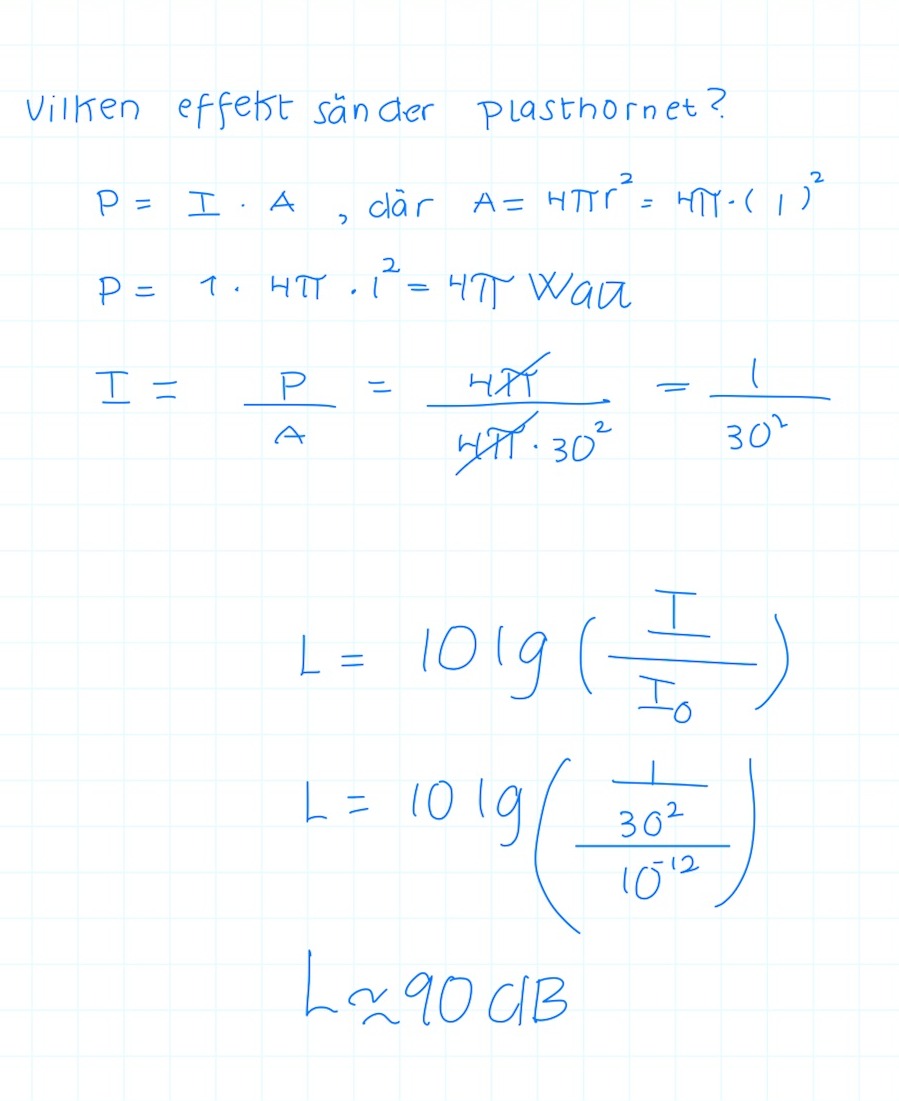 Vilken effekt sänder plasthornet?
P = I · A , där A = 4πr² = 4π·(1)²
P = 1 · 4π · 1² = 4π Watt
I = P/A = 4π/(4π · 30²) = 1/30²
L = 10 lg (I/I₀)
L = 10 lg ((1/30²)/10⁻¹²)
L ≈ 90 dB